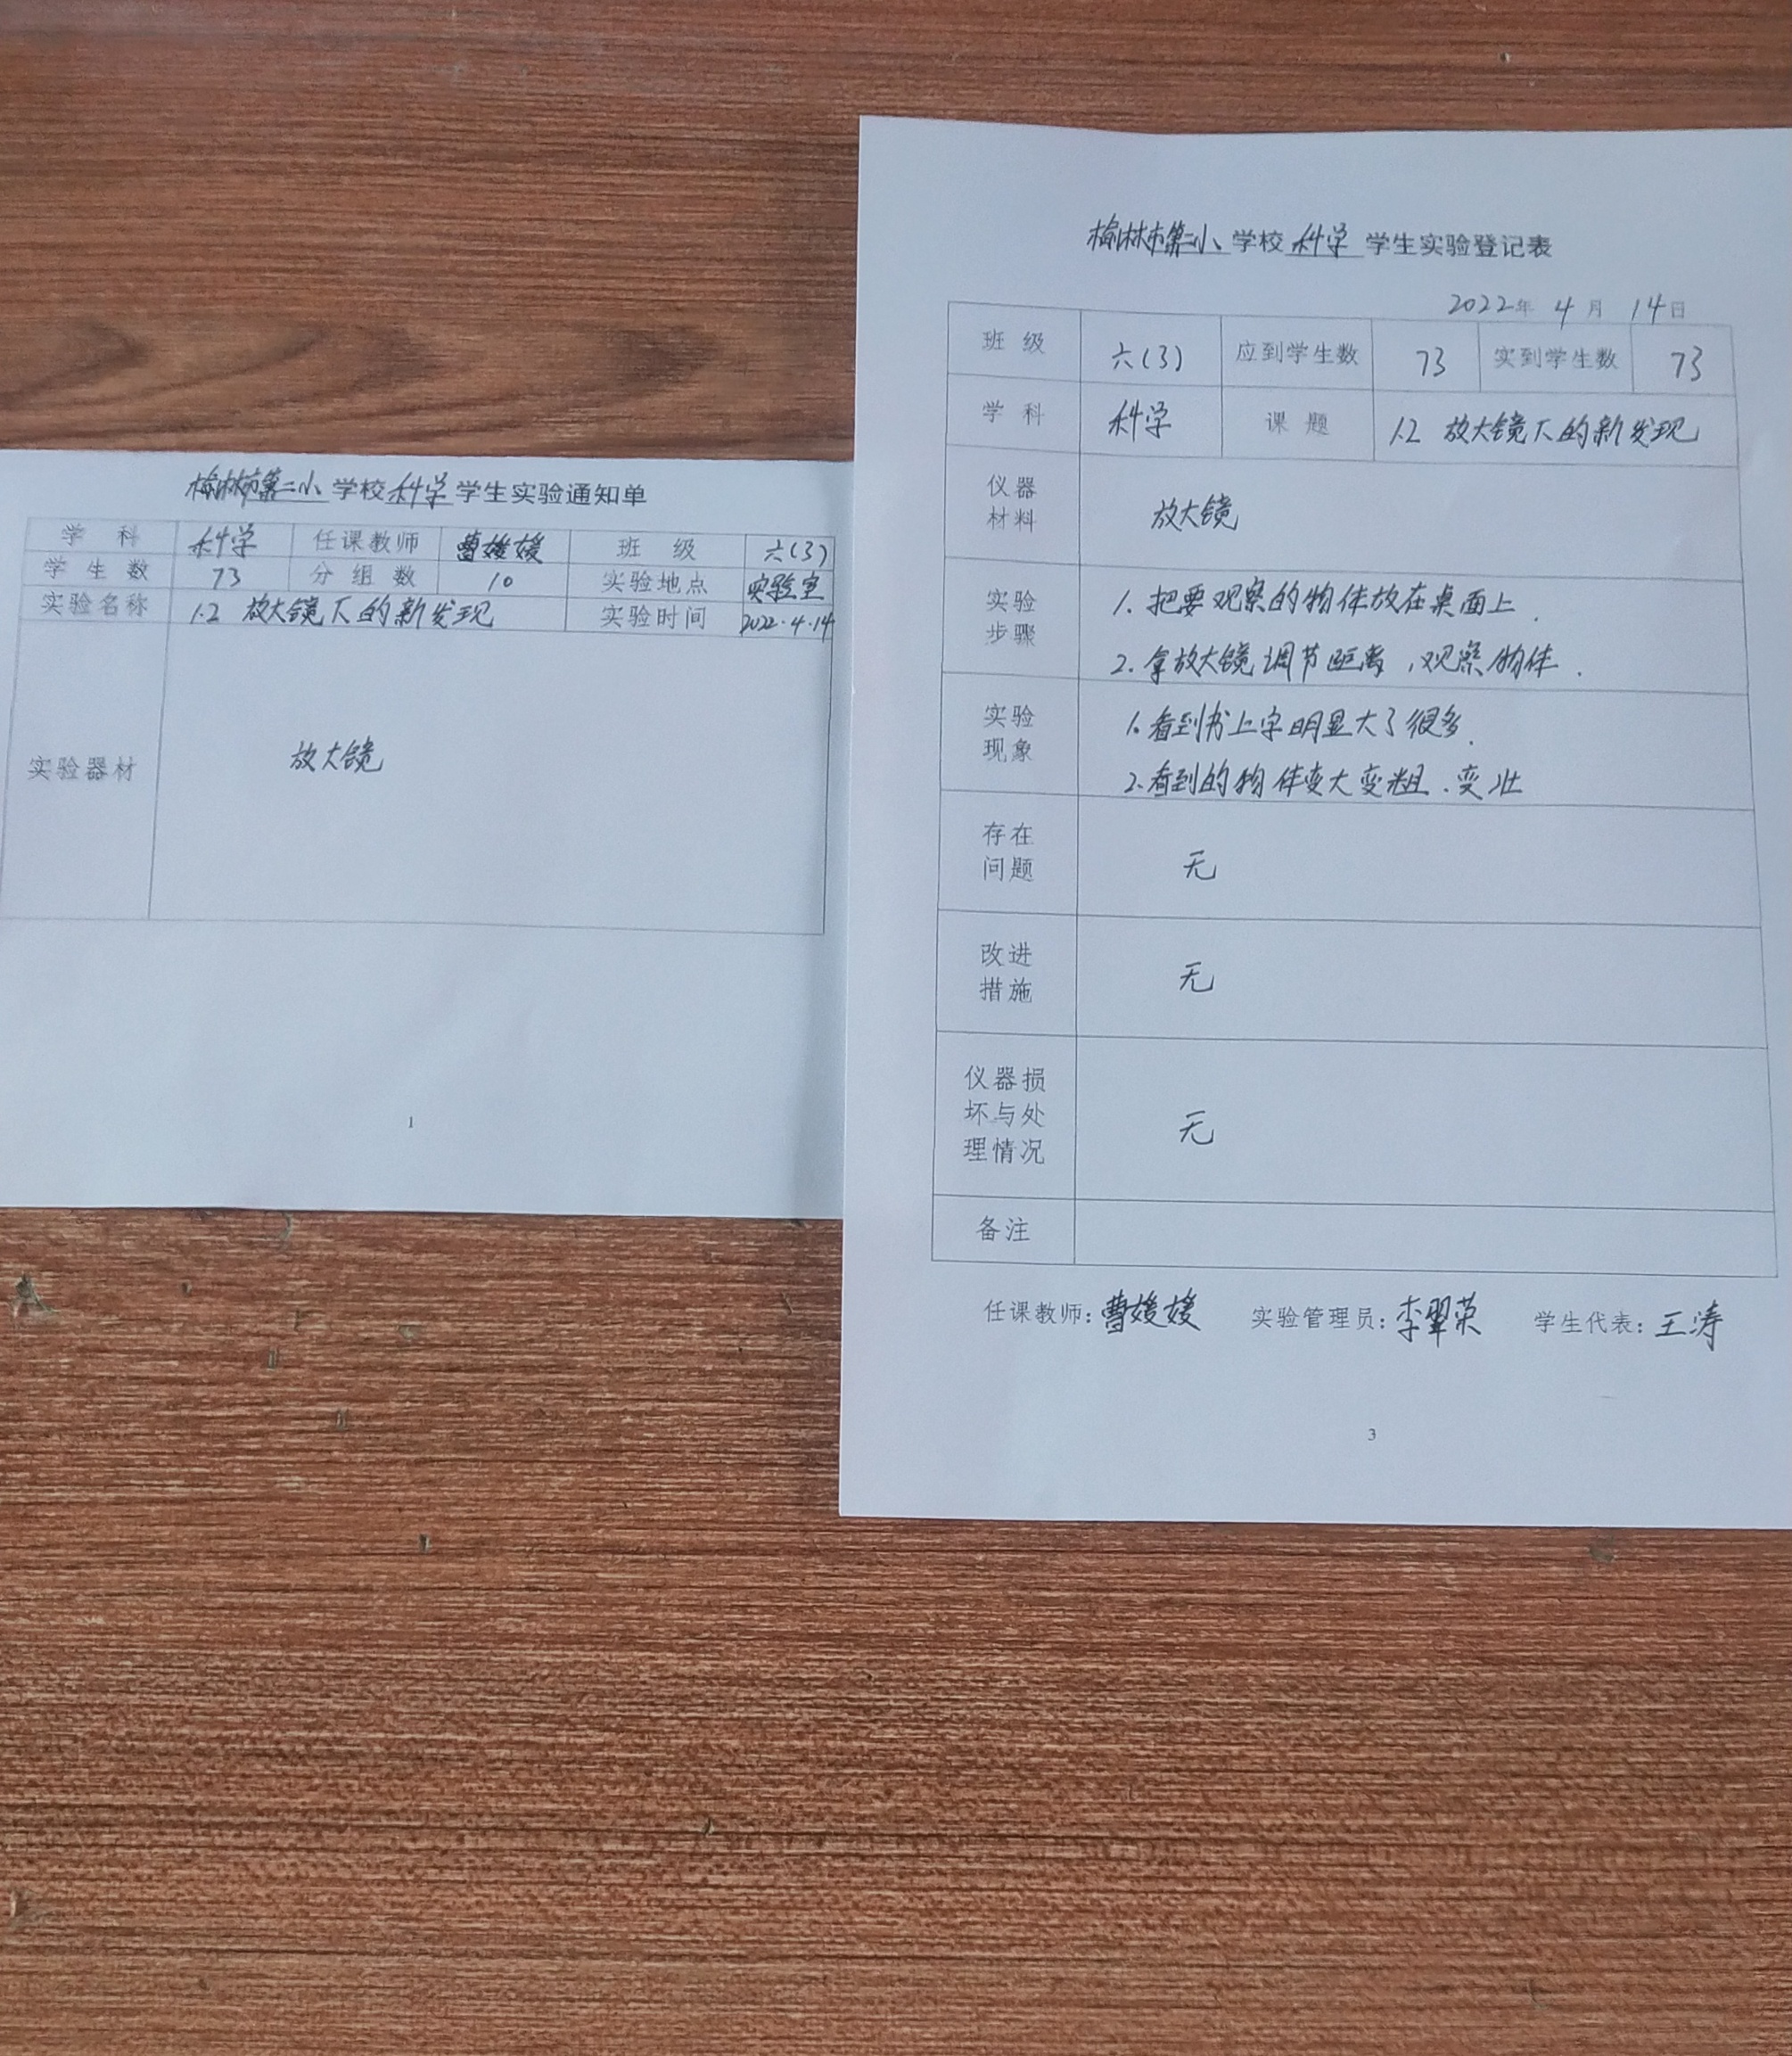 榆林市第二小学校科学学生实验通知单
学科 科学 任课教师 曹媛媛 班级 六(3)
学生数 73 分组数 10 实验地点 实验室
实验名称 1.2 放大镜下的新发现 实验时间 2022.4.14
实验器材 放大镜
1
榆林市第二小学校科学学生实验登记表
2022年4月14日
班级 六(3) 应到学生数 73 实到学生数 73
学科 科学 课题 1.2 放大镜下的新发现
仪器
材料 放大镜
实验
步骤
1. 把要观察的物体放在桌面上.
2. 拿放大镜调节距离,观察物体.
实验
现象
1. 看到书上字明显大了很多.
2. 看到的物体变大变粗.变壮
存在
问题 无
改进
措施 无
仪器损
坏与处
理情况 无
备注
任课教师:曹媛媛 实验管理员:李翠荣 学生代表:王涛
3